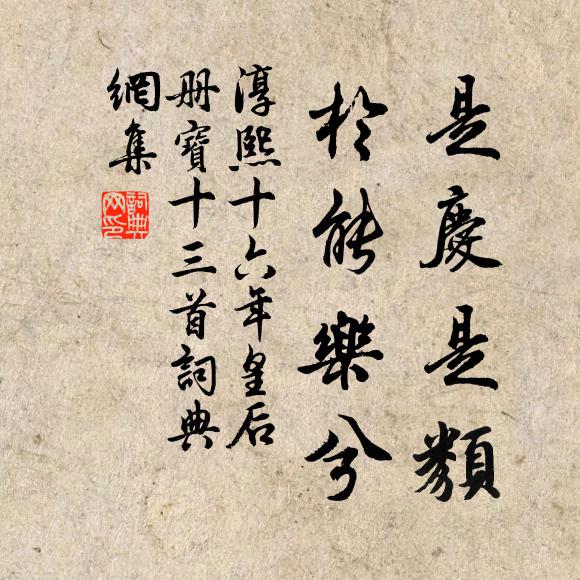 是慶是類
於能樂兮
淳熙十六年皇后
册寶十三首詞典
網集
詞典網印